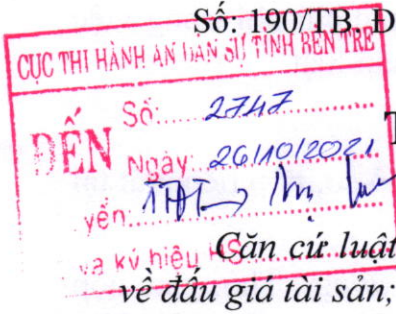 Số: 190/TB. Đ
CỤC THI HÀNH ÁN DÂN SỰ TỈNH BẾN TRE
ĐẾN
Số: 2747
Ngày: 26/10/2021
T
yển:
và ký hiệu HS
Căn cứ luật
về đấu giá tài sản;